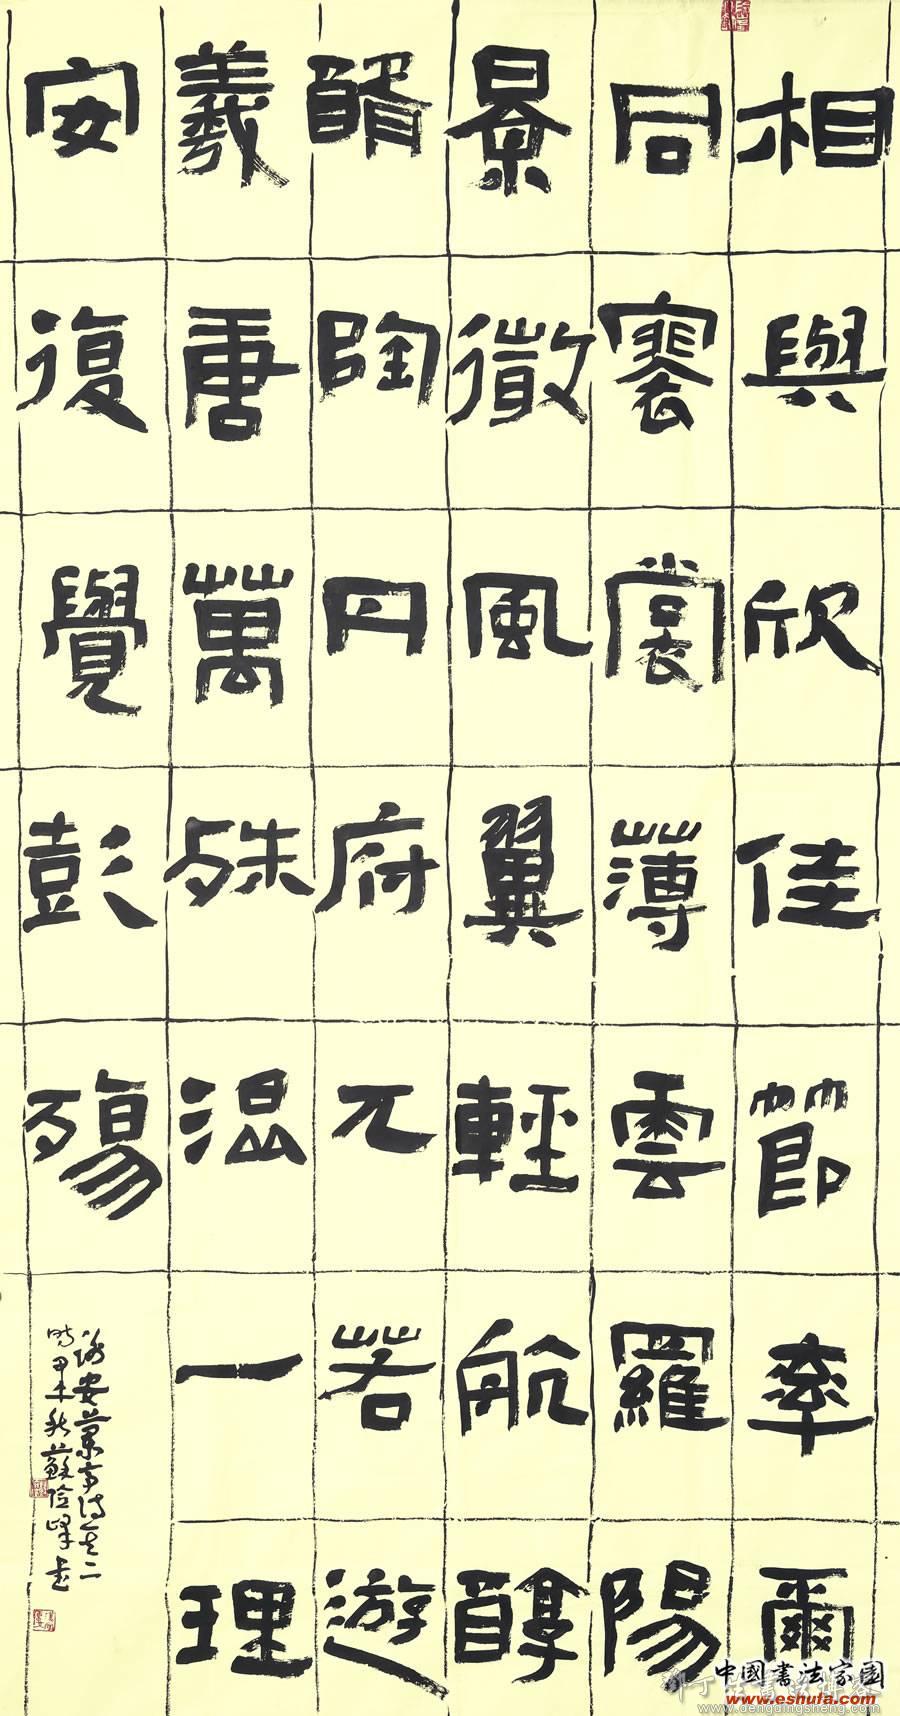 相與欣佳節率爾
同褰裳薄雲羅陽
景微風翼輕航醇
醑陶丹府兀若遊
羲唐萬殊混一理
安復覺彭殤
謝安蘭亭詩其二
時甲午秋蘇險峰書
中國書法家園
www.eshufa.com
www.dengdingsheng.com